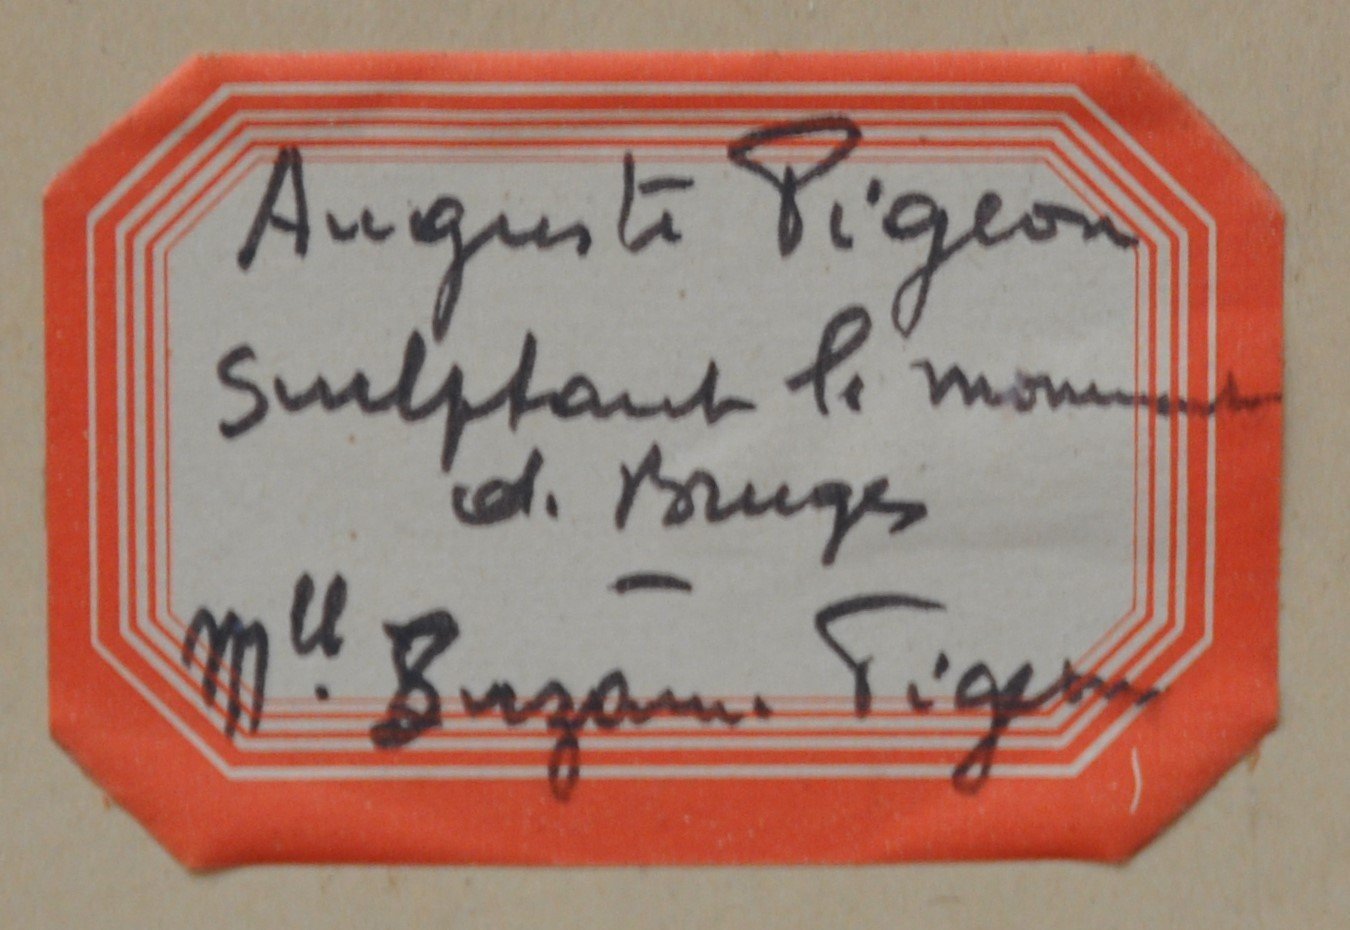 Auguste Pigeon
sculptant le monument
de Bruges
—
Mll. Suzanne Pigeon